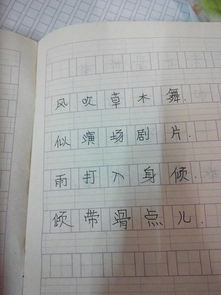 风吹草木舞.
似演场剧片.
雨打入身倾.
倾带骨点儿.